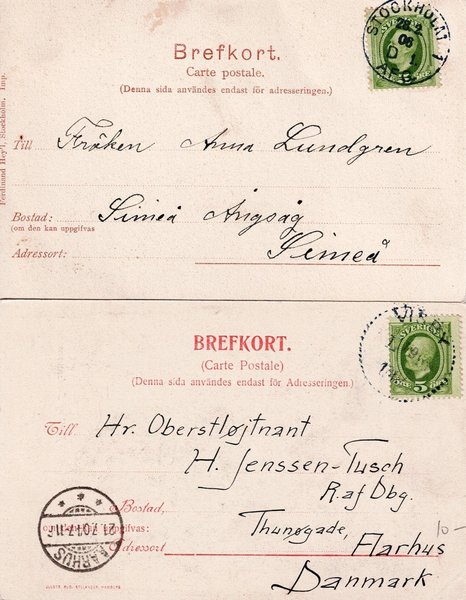 STOCKHOLM 1
06
Brefkort.
Carte postale.
(Denna sida användes endast för adresseringen.)
Ferdinand Hey'l, Stockholm. Imp.
Till Fröken Anna Lundgren
Bostad: Simeå Ångsåg
(om den kan uppgifvas
Adressort: Simeå
VISBY
SVERIGE
5
BREFKORT.
(Carte Postale)
(Denna sida användes endast för Adresseringen.)
Till Hr. Oberstløjtnant
H. Jenssen-Tusch
R af Dbg.
Bostad,
om den kan uppgifvas: Thunøgade,
Adressort Aarhus
Danmark
10-
AARHUS